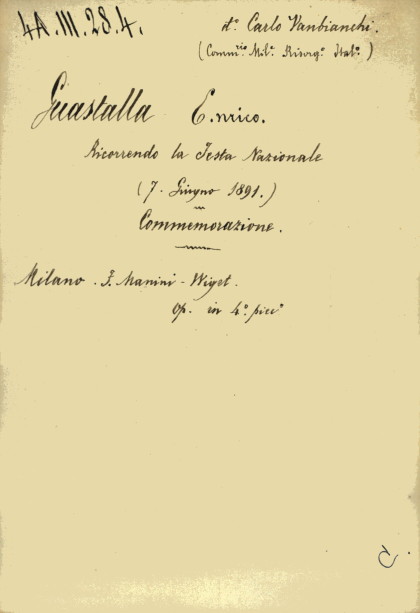 4A.III.28.4.
d.º Carlo Vanbianchi.
(Comm.rio Mil.e Risorg.º Ital.º)
Guastalla Enrico.
Ricorrendo la Festa Nazionale
(7. Giugno 1891.)
Commemorazione.
Milano. F. Manini-Wiget.
Op. in 4.º picc.º